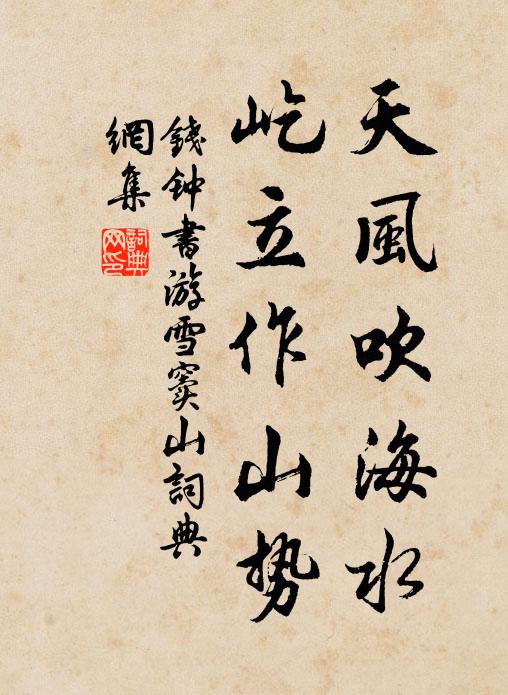 天風吹海水
屹立作山势
錢钟書游雪窦山詞典
網集
詞典
网印